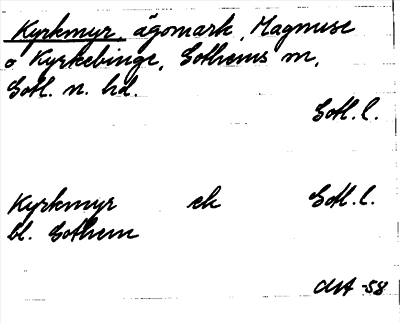 Kyrkmyr, ägomark, Magnuse
o Kyrkebinge, Gothems sn,
Gotl. n. hd.
Gotl. l.
Kyrkmyr ek Gotl. l.
bl. Gothem
-58